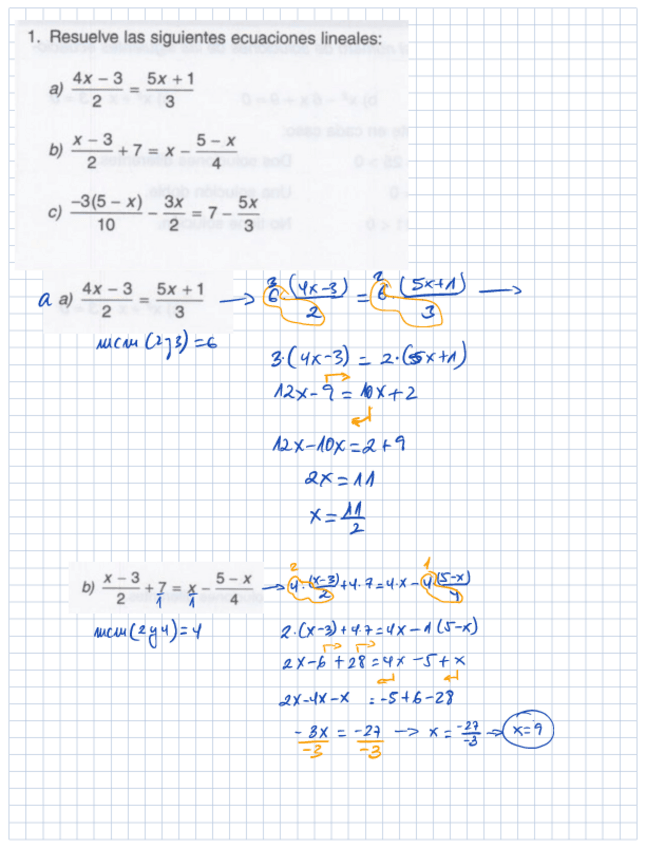 1. Resuelve las siguientes ecuaciones lineales:
a) (4x − 3)/2 = (5x + 1)/3
b) (x − 3)/2 + 7 = x − (5 − x)/4
c) (−3(5 − x))/10 − 3x/2 = 7 − 5x/3
a a) (4x − 3)/2 = (5x + 1)/3 → 3 6 (4x−3)/2 = 2 6 (5x+1)/3 →
mcm (2 y 3) = 6
3·(4x−3) = 2·(5x+1)
12x−9 = 10x+2
12x−10x = 2+9
2x = 11
x = 11/2
b) (x − 3)/2 + 7/1 = x/1 − (5 − x)/4 → 2 4·(x−3)/2 + 4·7 = 4·x − 1 4(5−x)/4
mcm (2 y 4) = 4
2·(x−3)+4·7 = 4x−1(5−x)
2x−6+28 = 4x−5+x
2x−4x−x = −5+6−28
−3x/−3 = −27/−3 → x = −27/−3 → x=9